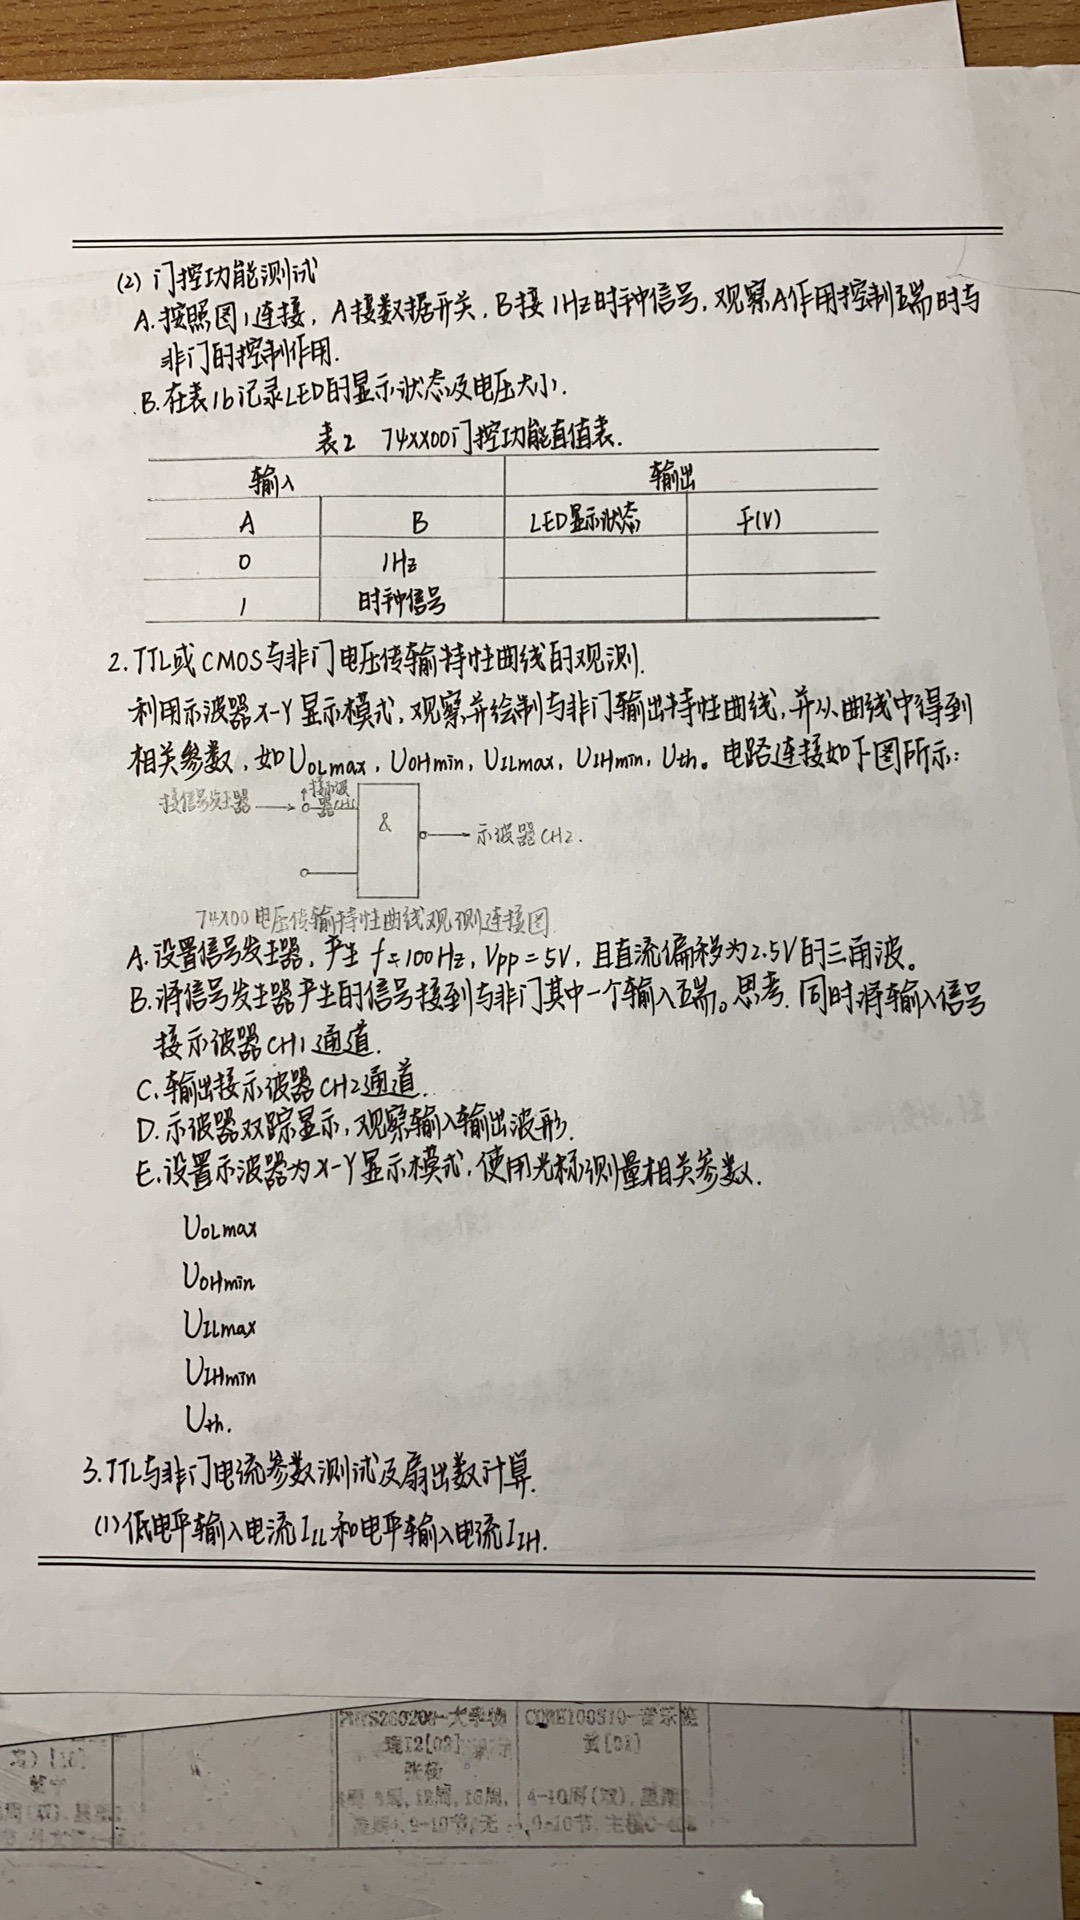 (2) 门控功能测试
A.按照图1连接，A接数据开关，B接1Hz时钟信号，观察A作用控制端时与
非门的控制作用.
B.在表1b记录LED的显示状态及电压大小.
表2 74XX00门控功能真值表.
输入 输出
A B LED显示状态 F(V)
0 1Hz
1 时钟信号
2.TTL或CMOS与非门电压传输特性曲线的观测.
利用示波器X-Y显示模式，观察并绘制与非门输出特性曲线，并从曲线中得到
相关参数，如UOLmax，UOHmin，UILmax，UIHmin，Uth。电路连接如下图所示：
接示波
接信号发生器 器CH1
&
示波器CH2.
74X00电压传输特性曲线观测连接图
A.设置信号发生器，产生f=100Hz，Vpp=5V，且直流偏移为2.5V的三角波。
B.将信号发生器产生的信号接到与非门其中一个输入端。思考.同时将输入信号
接示波器CH1通道.
C.输出接示波器CH2通道.
D.示波器双踪显示，观察输入输出波形.
E.设置示波器为X-Y显示模式，使用光标测量相关参数.
UOLmax
UOHmin
UILmax
UIHmin
Uth.
3.TTL与非门电流参数测试及扇出数计算.
(1)低电平输入电流IIL和电平输入电流IIH.
张杨
黄[01]